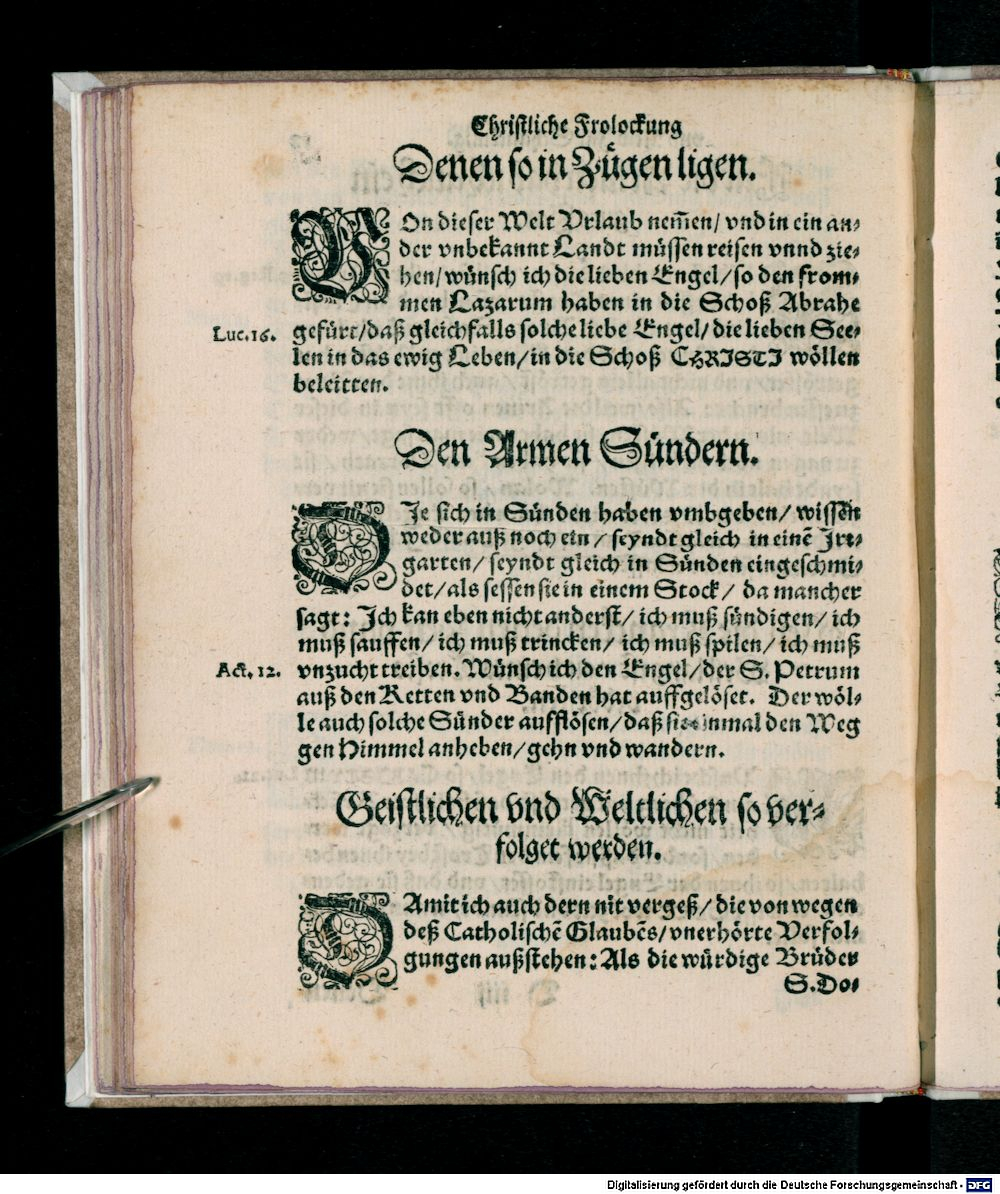 Christliche Frolockung
Denen so in Zügen ligen.
VOn dieser Welt Vrlaub nem̃en/ vnd in ein an-
der vnbekannt Landt müssen reisen vnnd zie-
hen/ wünsch ich die lieben Engel/ so den from-
men Lazarum haben in die Schoß Abrahe
Luc. 16.
gefürt/ daß gleichfalls solche liebe Engel/ die lieben See-
len in das ewig Leben/ in die Schoß CHRISTI wöllen
beleitten.
Den Armen Sündern.
DIe sich in Sünden haben vmbgeben/ wissen
weder auß noch ein/ seyndt gleich in einẽ Irr-
garten/ seyndt gleich in Sünden eingeschmi-
det/ als sessen sie in einem Stock/ da mancher
sagt: Ich kan eben nicht anderst/ ich muß sündigen/ ich
muß sauffen/ ich muß trincken/ ich muß spilen/ ich muß
Act. 12.
vnzucht treiben. Wünsch ich den Engel/ der S. Petrum
auß den Ketten vnd Banden hat auffgelöset. Der wöl-
le auch solche Sünder aufflösen/ daß sie einmal den Weg
gen Himmel anheben/ gehn vnd wandern.
Geistlichen vnd Weltlichen so ver-
folget werden.
DAmit ich auch dern nit vergeß/ die von wegen
deß Catholischẽ Glaubẽs/ vnerhörte Verfol-
gungen außstehen: Als die würdige Brüder
S. Do-
Digitalisierung gefördert durch die Deutsche Forschungsgemeinschaft - DFG